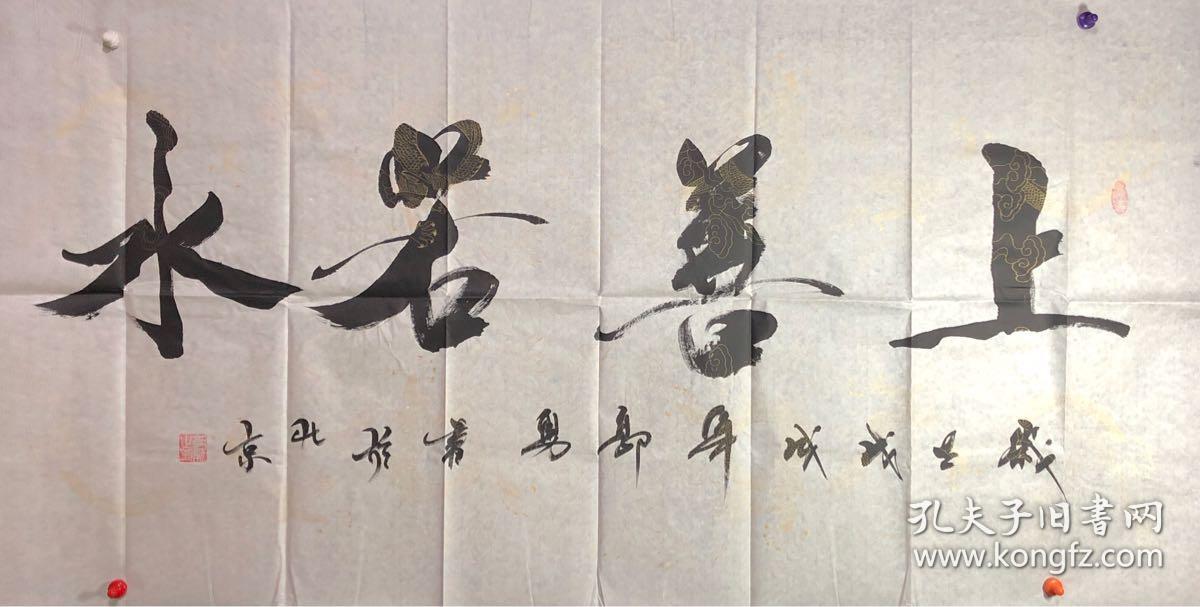 上善若水
歲在戊戌年鄙易書於北京
孔夫子旧書网
www.kongfz.com